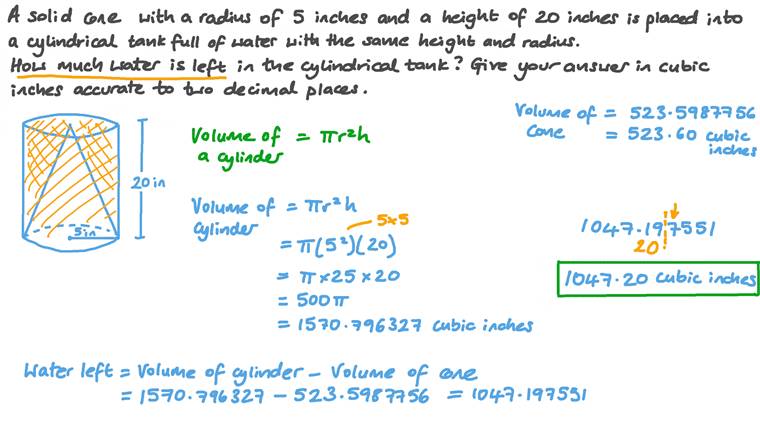 A solid cone with a radius of 5 inches and a height of 20 inches is placed into
a cylindrical tank full of water with the same height and radius.
How much water is left in the cylindrical tank? Give your answer in cubic
inches accurate to two decimal places.
20in
5in
Volume of = πr²h
a cylinder
Volume of = πr²h
cylinder
5×5
= π(5²)(20)
= π×25×20
= 500π
= 1570.796327 cubic inches
Volume of = 523.5987756
Cone = 523.60 cubic
inches
1047.197551
20
1047.20 cubic inches
Water left = Volume of cylinder - Volume of cone
= 1570.796327 - 523.5987756 = 1047.197551